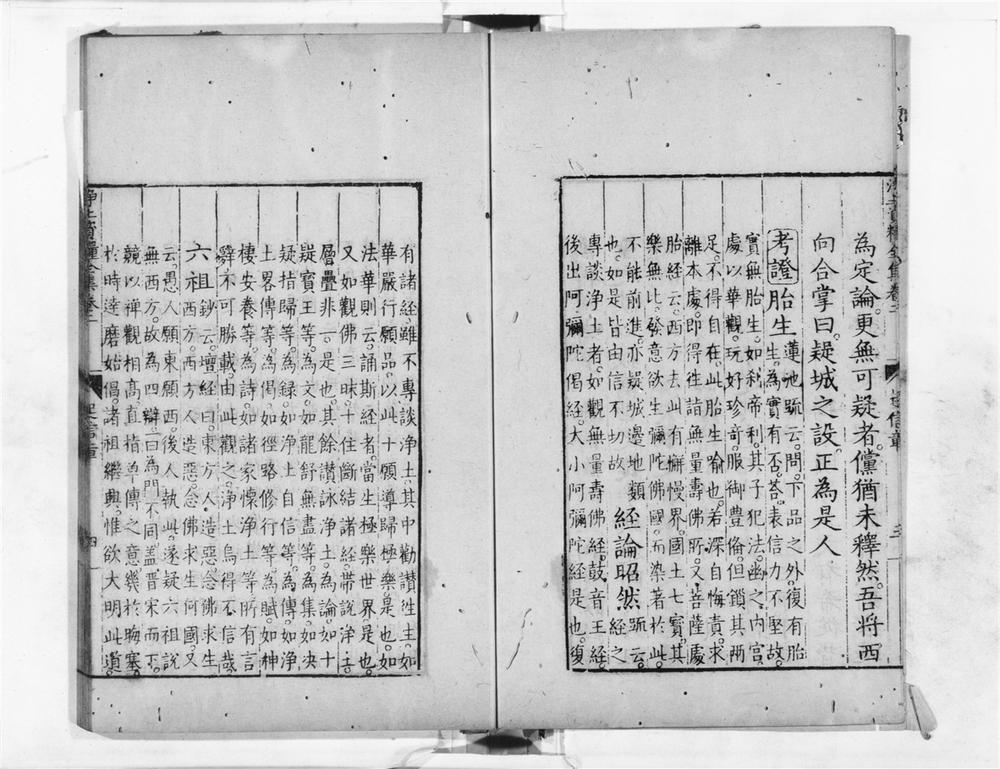 為定論。更無可疑者。儻猶未釋然。吾將西
向合掌曰。疑城之設。正為是人
考證 胎生 蓮池䟽云。問。下品之外。復有胎
生。為實有否。答。表信力不堅故。
實無胎生。如剎帝利。其子犯法。幽之內宮。
處以華觀。玩好珍奇。服御豊俻。但鎖其兩
足。不得自在。此胎生喻也。若深自悔責。求
離本處。即得徃詣無量壽佛所。又菩薩處
胎經云。西方去此有懈慢界。國土七寶。其
樂無比。發意欲生彌陀佛國。而染著於此。
不能前進。亦疑城邊地類
也。如是皆由信不切故 經論昭然 䟽云。經之
專談淨土者。如觀無量壽佛經。鼓音王經。
後出阿彌陀偈經。大小阿彌陀經是也。復
有諸經。雖不專談淨土。其中勸讃徃生。如
華嚴行願品。以此十願導歸極樂。是也。如
法華則云。誦斯經者。當生極樂世界。是也。
又如觀佛三昧。十住斷結諸經。帶說淨土。
層疊非一。是也。其餘讃詠淨土。為論。如十
疑寶王等。為文。如龍舒無盡等。為集。如决
疑指歸等。為録。如淨土自信等。為傳。如淨
土界傳等。為偈。如徑路修行等。為賦。如神
棲安養等。為詩。如諸家懷淨土等。所有言
辭。不可勝載。由此觀之。淨土烏得不信哉
六祖 鈔云。壇經曰。東方人造惡。念佛求生
西方。西方人造惡。念佛求生何國。又
云。愚人願東願西。後人執此。遂疑六祖說
無西方。故為四辯。一曰為門不同。盖晋宋而下。
競以禪觀相高。直指單傳之意。幾於晦塞。
於時達磨始倡。諸祖繼興。惟欲大明此道。
淨土資糧全集卷二
起信章
三
四